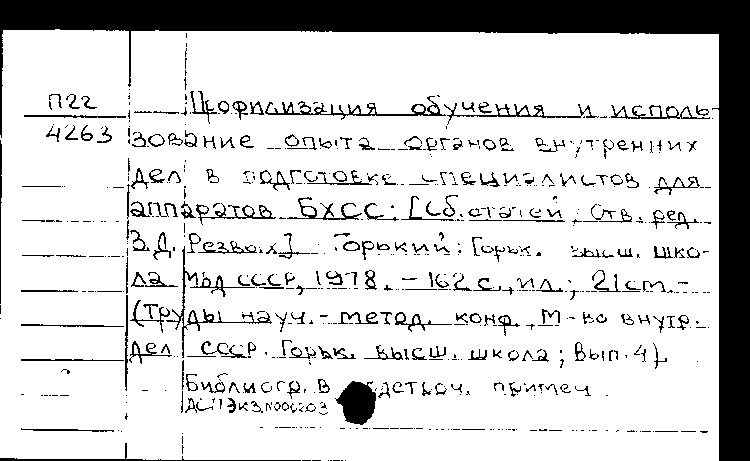 П22
4263
Профилизация обучения и исполь-
зование опыта органов внутренних
дел в подготовке специалистов для
аппаратов БХСС: [Сб. статей; Отв. ред.
З.Д. Резвых] Горький: Горьк. высш. шко-
ла МВД СССР, 1978. – 162 с., ил.; 21 cm. –
(Труды науч.-метод. конф., М-во внутр.
дел СССР. Горьк. высш. школа; Вып. 4).
Библиогр. в подстроч. примеч.
ДСП Экз.N000203